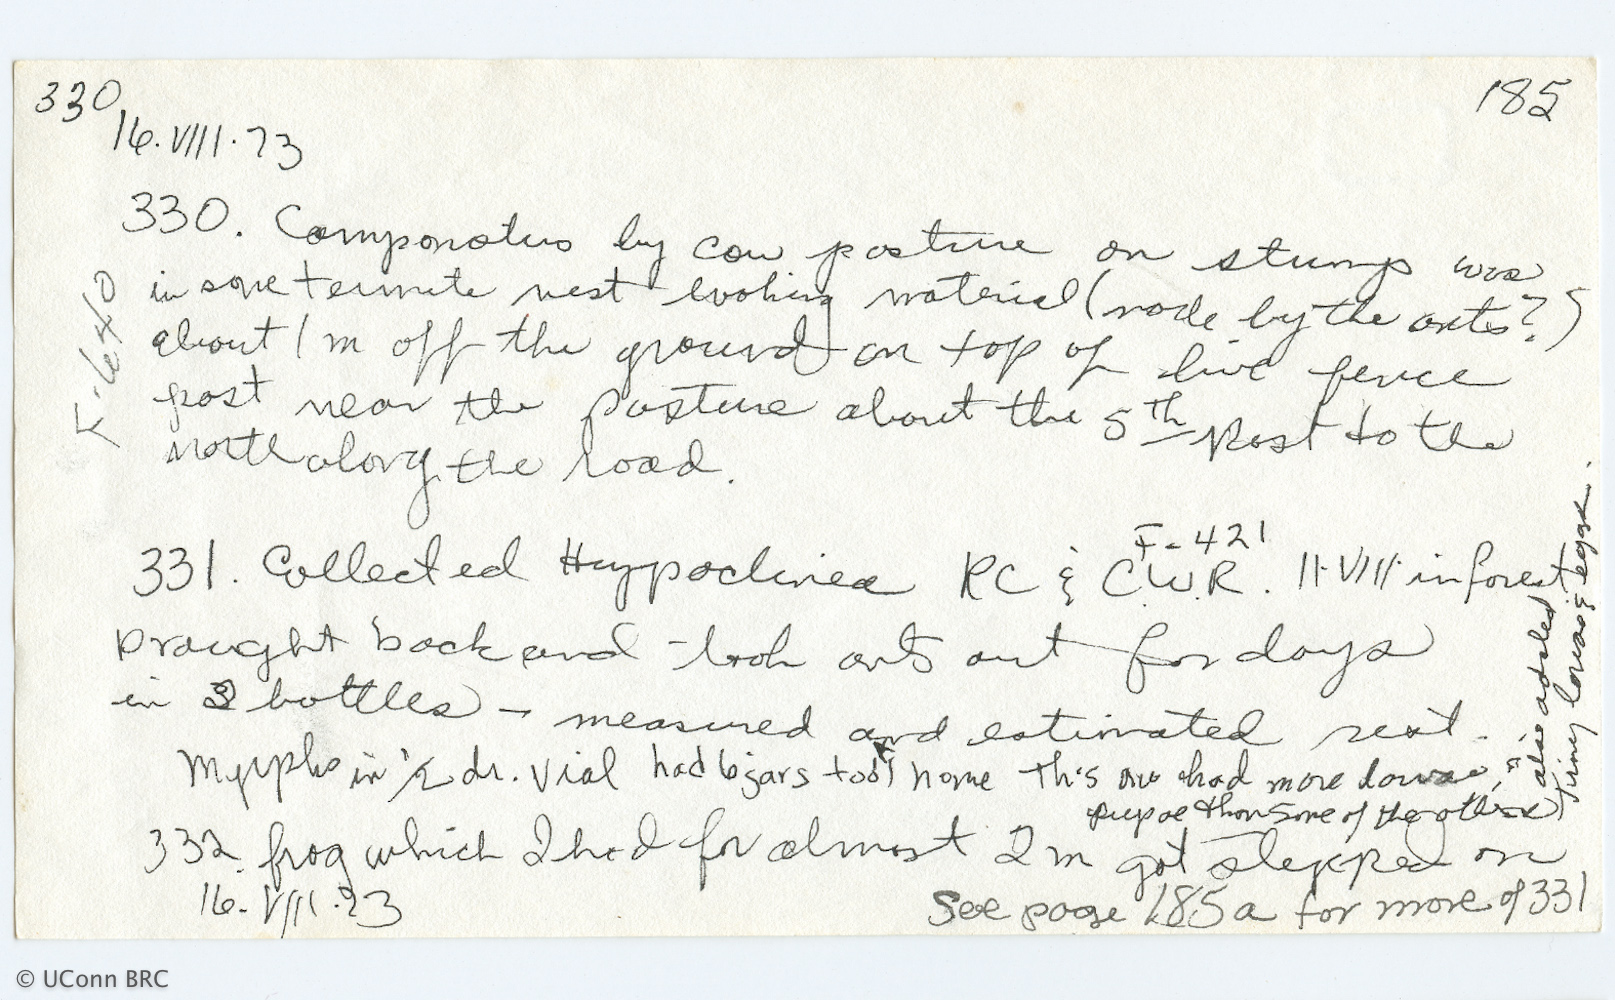 330
185
16.VIII.73
330. Camponotus by cow pasture on stump was
in some termite nest looking material (made by the ants?)
about 1 m off the ground on top of live fence
post near the pasture about the 5th post to the
north along the road.
F-640
331. Collected Hypoclinea RC & C.W.R. 11.VIII in forest
F-421
brought back and took ants out for days
in 3 bottles - measured and estimated rest.
Nymphs in 1/2 dr. vial had 6 jars took home this one had more larvae &
pupae than some of the others
also added
tiny larvae & eggs.
332. frog which I had for almost 2 m got stepped on
16.VIII.73
See page 185a for more of 331
© UConn BRC